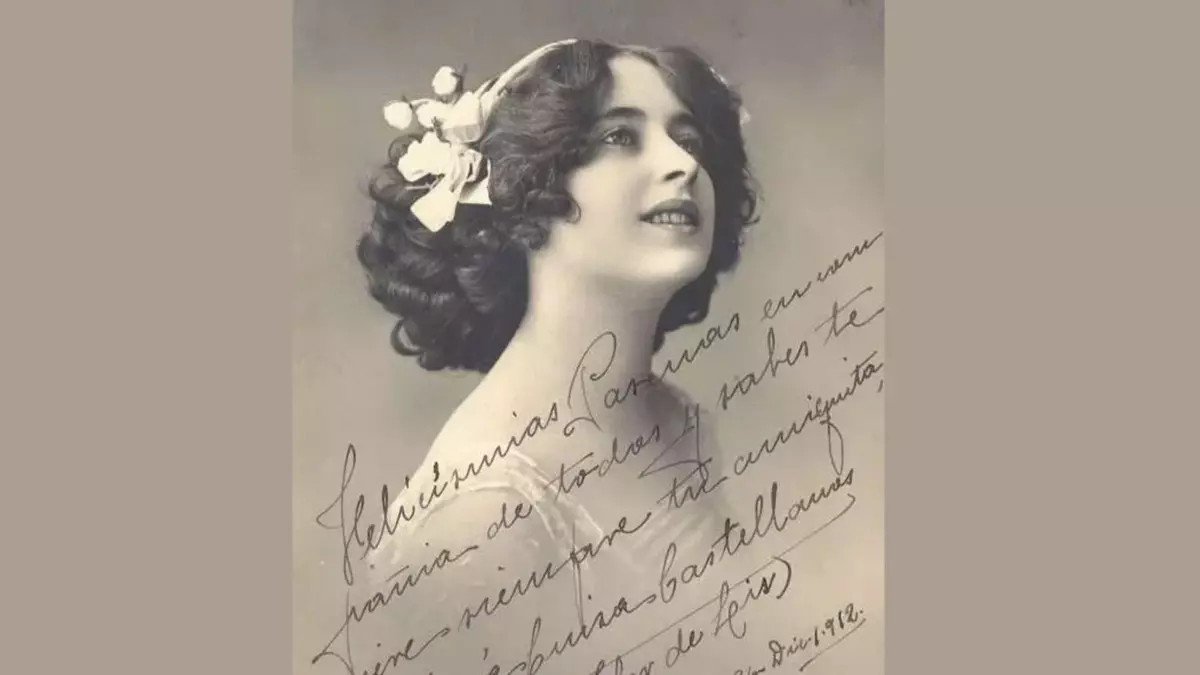 Felicísimias Pascuas en com
pañia de todos y sabes te
iere siempre tu amiguita,
Luisa Castellanos
(Flor de Lis)
Dic. 1.912.